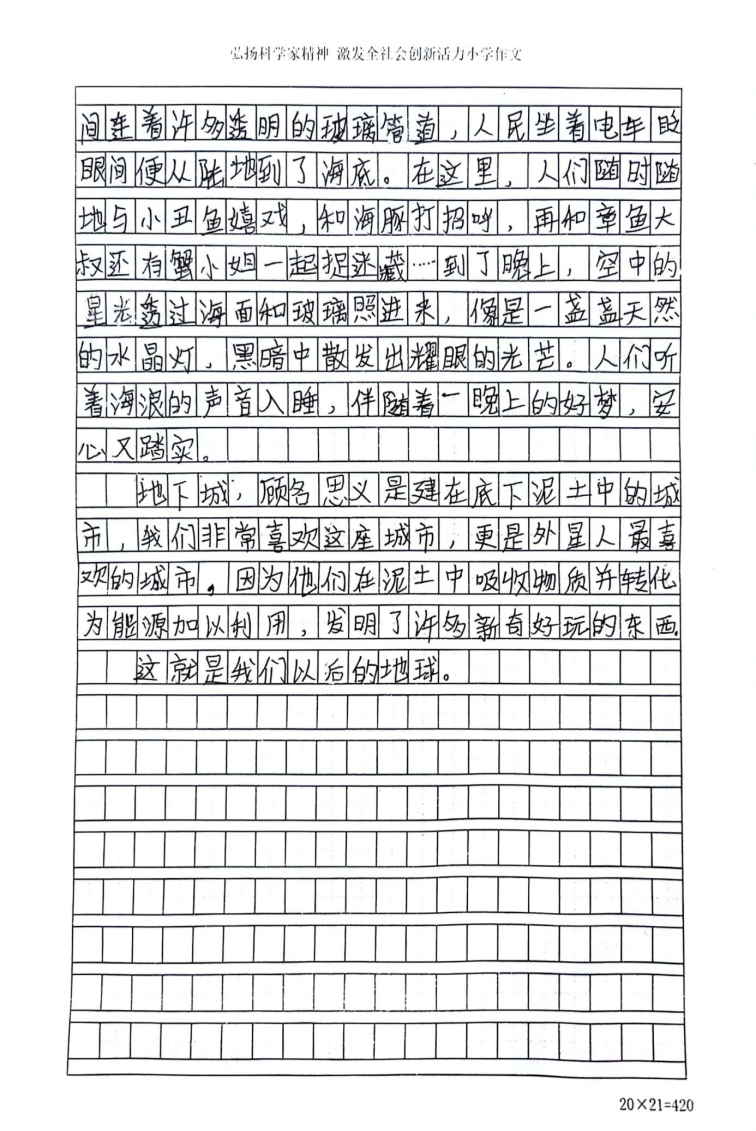 弘扬科学家精神 激发全社会创新活力小学作文
间连着许多透明的玻璃管道，人民坐着电车眨
眼间便从陆地到了海底。在这里，人们随时随
地与小丑鱼嬉戏，和海豚打招呼，再和章鱼大
叔还有蟹小姐一起捉迷藏……到了晚上，空中的
星光透过海面和玻璃照进来，像是一盏盏天然
的水晶灯，黑暗中散发出耀眼的光芒。人们听
着海浪的声音入睡，伴随着一晚上的好梦，安
心又踏实。
地下城，顾名思义是建在底下泥土中的城
市，我们非常喜欢这座城市，更是外星人最喜
欢的城市，因为他们在泥土中吸收物质并转化
为能源加以利用，发明了许多新奇好玩的东西.
这就是我们以后的地球。
20×21=420